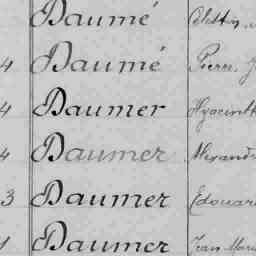 Daumé Celestin
4 Daumé Pierre, J
4 Daumer Hyacinth
4 Daumer Alexand
3 Daumer Edouar
1 Daumer Jean Marie